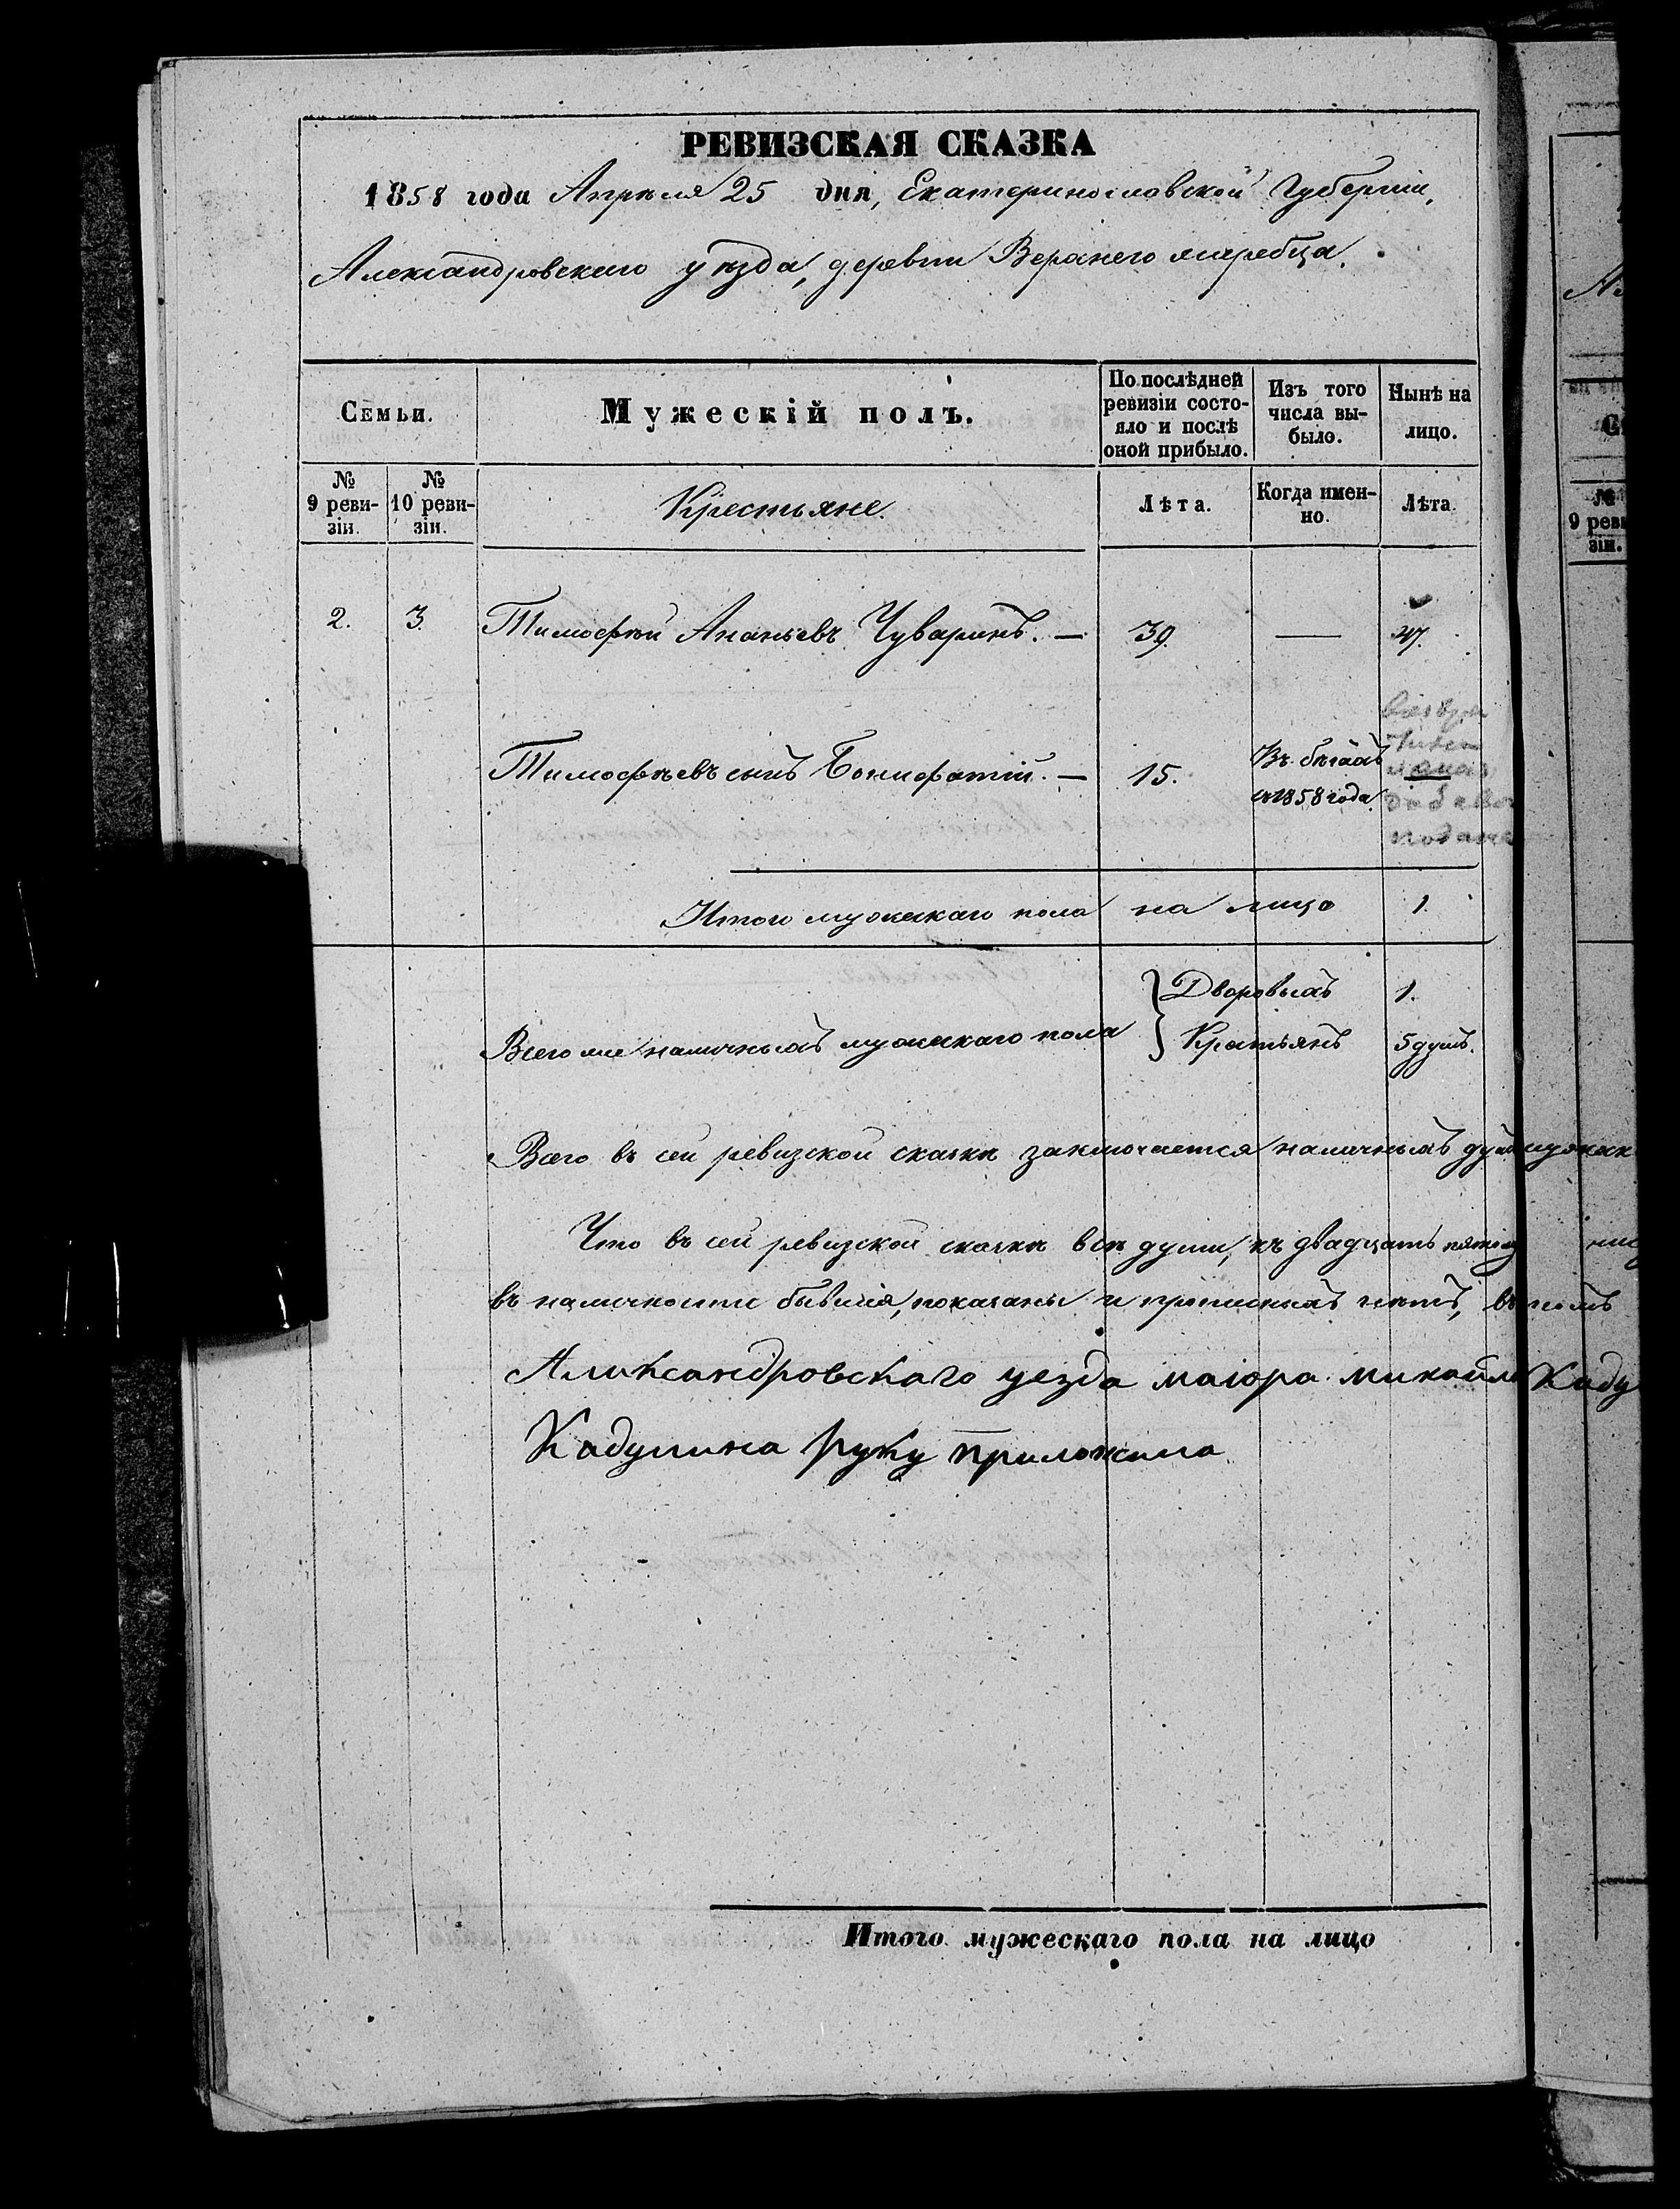 РЕВИЗСКАЯ СКАЗКА
1858 года Апрѣля 25 дня, Екатеринославской Губерніи,
Александровскаго уѣзда, деревни Верхнего жеребца.
Семьи.
Мужескій полъ.
По послѣдней ревизіи состо-
яло и послѣ оной прибыло.
Изъ того числа вы-
было.
Нынѣ на лицо.
№ 9 реви-
зіи.
№ 10 реви-
зіи.
Крестьяне.
Лѣта.
Когда имен-
но.
Лѣта.
2. 3. Тимофѣй Ананьевъ Чуваринъ. — 39. — 47.
Тимофѣевъ сынъ Бонифатій. — 15. Въ бѣгахъ
съ 1858 года.
Итого мужескаго пола на лицо 1.
Дворовыхъ 1.
Всего же наличныхъ мужескаго пола } Крестьянъ 5 душъ.
Всего въ сей ревизской сказкѣ заключается наличныхъ душъ
Что въ сей ревизской сказкѣ всѣ души, къ двадцать
въ наличности бывшія, показаны и прописныхъ нѣтъ, въ
Александровскаго уезда маіора михаила
Кадулина руку приложила
Итого мужескаго пола на лицо
№
9 реви
зіи.